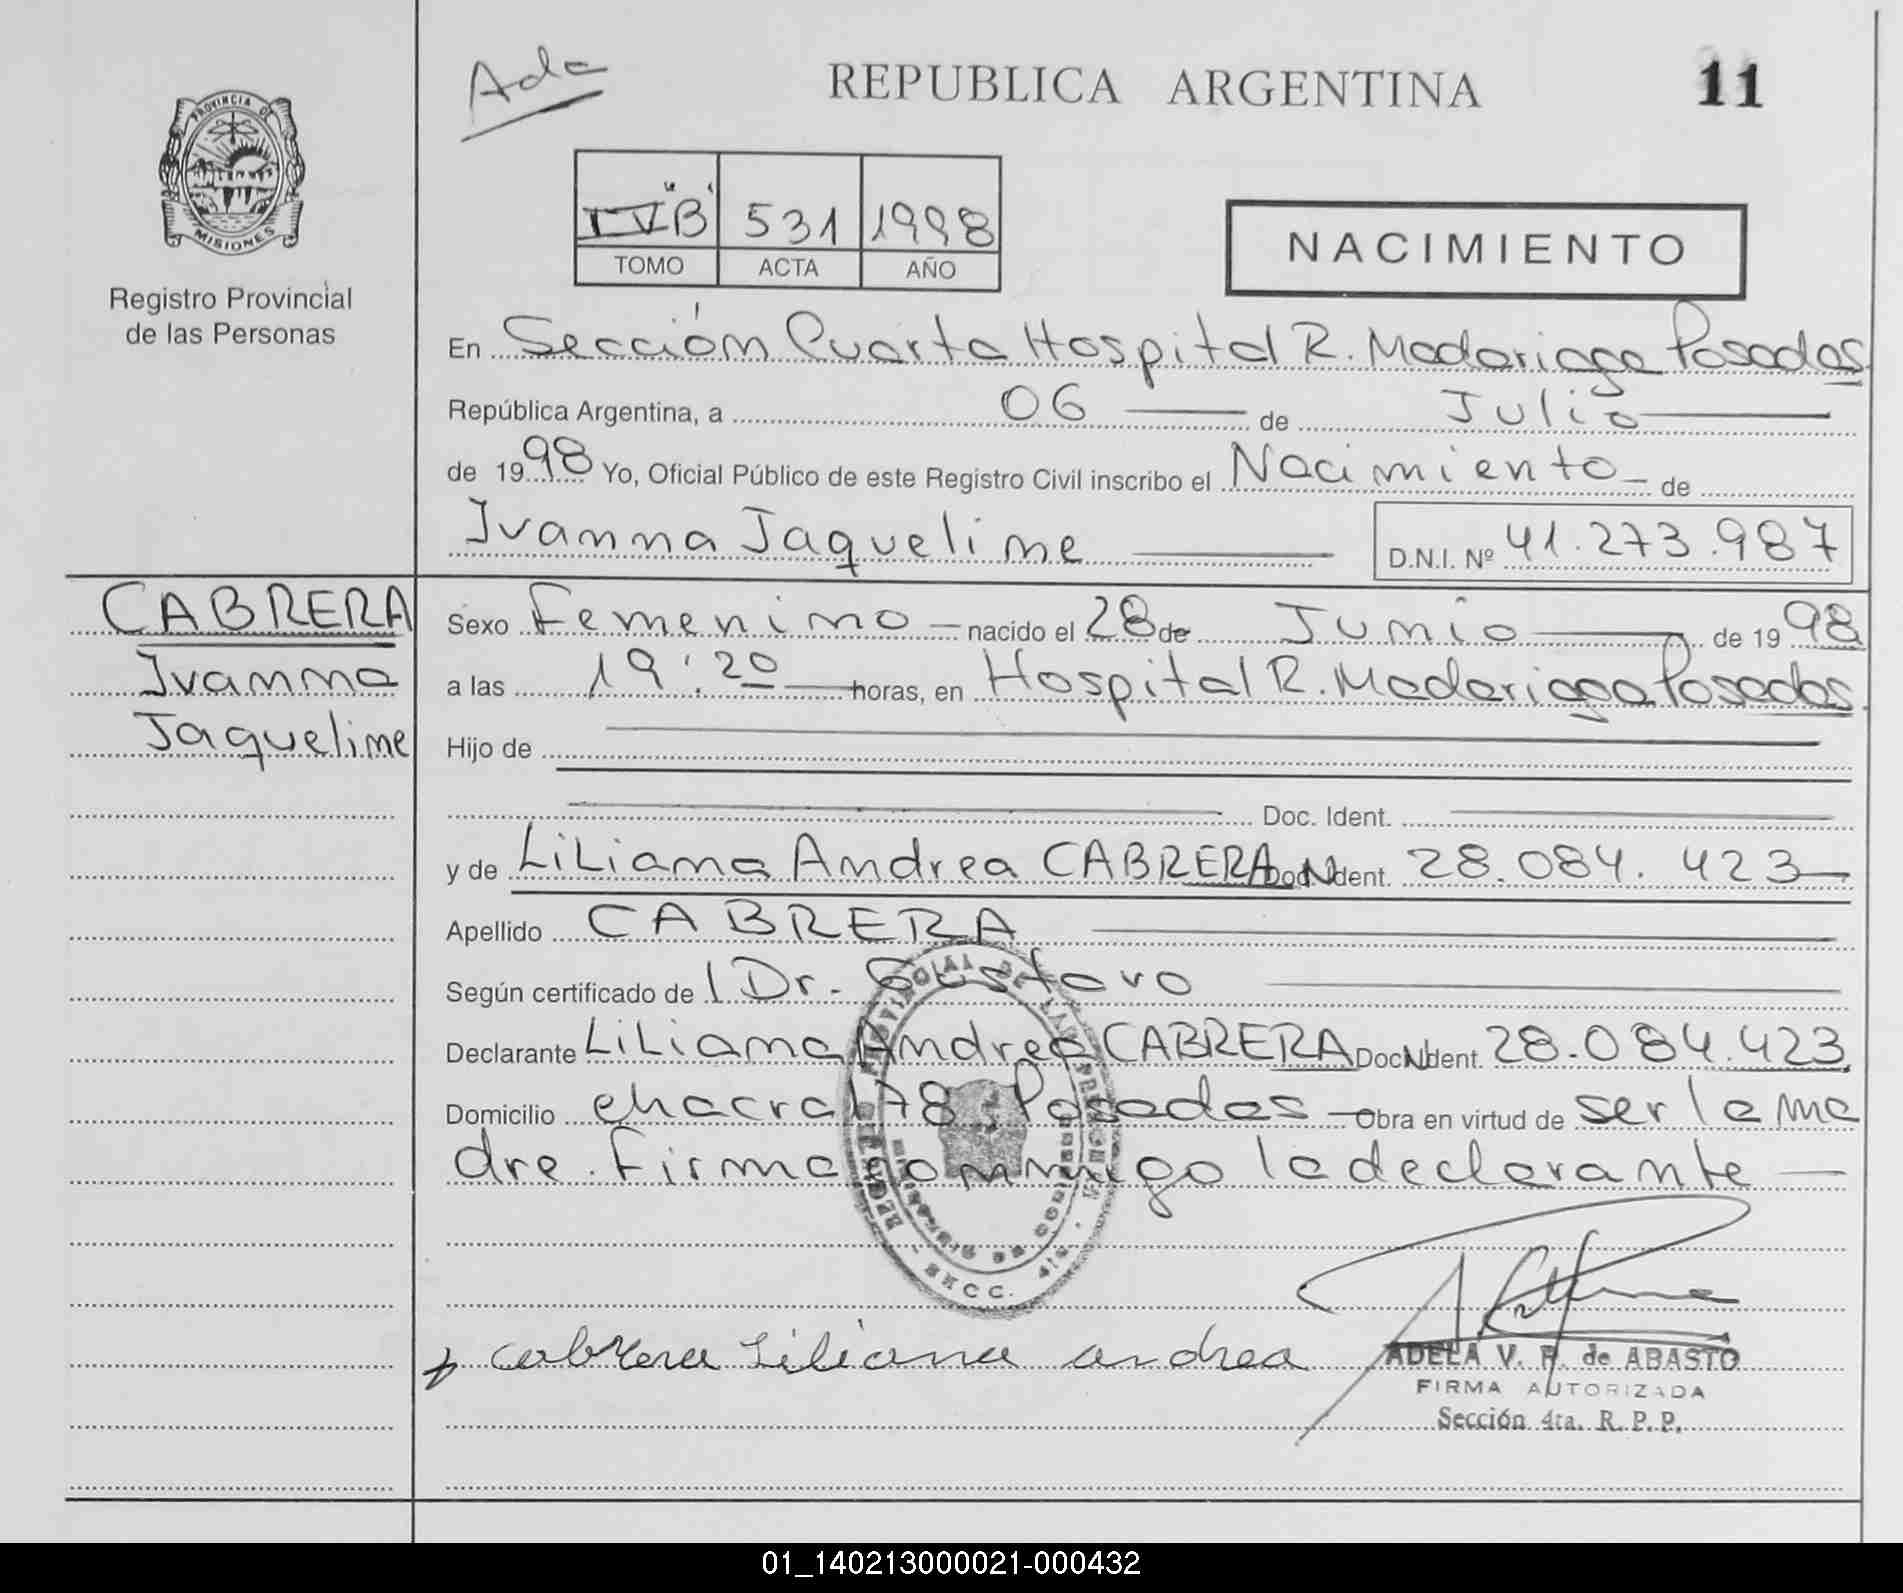 Ada
REPUBLICA ARGENTINA
11
PROVINCIA DE
MISIONES
Registro Provincial
de las Personas
IV "B" 531 1998
TOMO ACTA AÑO
NACIMIENTO
En Sección Cuarta Hospital R. Madariaga Posadas
República Argentina, a 06 de Julio
de 1998 Yo, Oficial Público de este Registro Civil inscribo el Nacimiento de
Ivanna Jaqueline D.N.I. Nº 41.273.987
CABRERA
Ivanna
Jaqueline
Sexo Femenino nacido el 28 de Junio de 1998
a las 19:20 horas, en Hospital R. Madariaga Posadas.
Hijo de
Doc. Ident.
y de Liliana Andrea CABRERA Doc. Ident. 28.084.423
Apellido CABRERA
Según certificado de l Dr. Gustavo
Declarante Liliana Andrea CABRERA Doc. Ident. 28.084.423.
Domicilio chacra 178 Posadas Obra en virtud de ser la ma
dre. Firma conmigo la declarante
SECC. 4ta.
Cabrera Liliana andrea
ADELA V. F. de ABASTO
FIRMA AUTORIZADA
Sección 4ta. R. P. P.
01_140213000021-000432